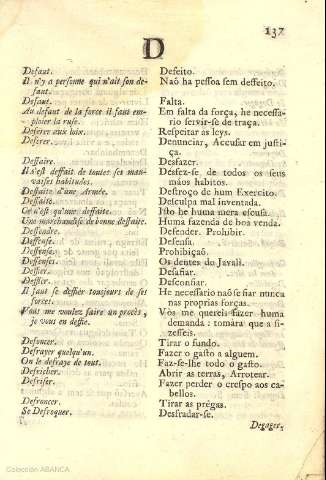 137
D
Defaut. Defeito.
Il n'y a personne qui n'ait son de- Naõ ha pessoa sem deffeito.
faut.
Defaut. Falta.
Au defaut de la force il faut em- Em falta da força, he necessa-
ploier la ruse. rio servir-se de traça.
Deferer aux loix. Respeitar as leys.
Deferer. Denunciar, Accusar em justi-
ça.
Deffaire. Desfazer.
Il s'est deffait de toutes ses mau- Desfez-se de todos os seus
vaises habitudes. máos habitos.
Deffaite d'une Armée. Destroço de hum Exercito.
Deffaite. Desculpa mal inventada.
Ce n'est qu'une deffaite. Isto he huma mera escusa.
Une marchandise de bonne deffaite. Huma fazenda de boa venda.
Deffendre. Defender. Prohibir.
Deffense. Defensa.
Deffense. Prohibiçaõ.
Deffenses. Os dentes do Javalí.
Deffier. Desafiar.
Deffier. Desconfiar.
Il faut se deffier tousjours de ses He necessario naõ se fiar nunca
forces. nas proprias forças.
Vous me voulez faire un procès, Vós me quereis fazer huma
je vous en deffie. demanda: tomára que a fi-
zesseis.
Defoncer. Tirar o fundo.
Defrayer quelqu'un. Fazer o gasto a alguem.
On le defraye de tout. Faz-se-lhe todo o gasto.
Defricher. Abrir as terras, Arrotear.
Defriser. Fazer perder o crespo aos ca-
bellos.
Defroncer. Tirar as prégas.
Se Defroquer. Desfradar-se.
Degager,
Colección ABANCA